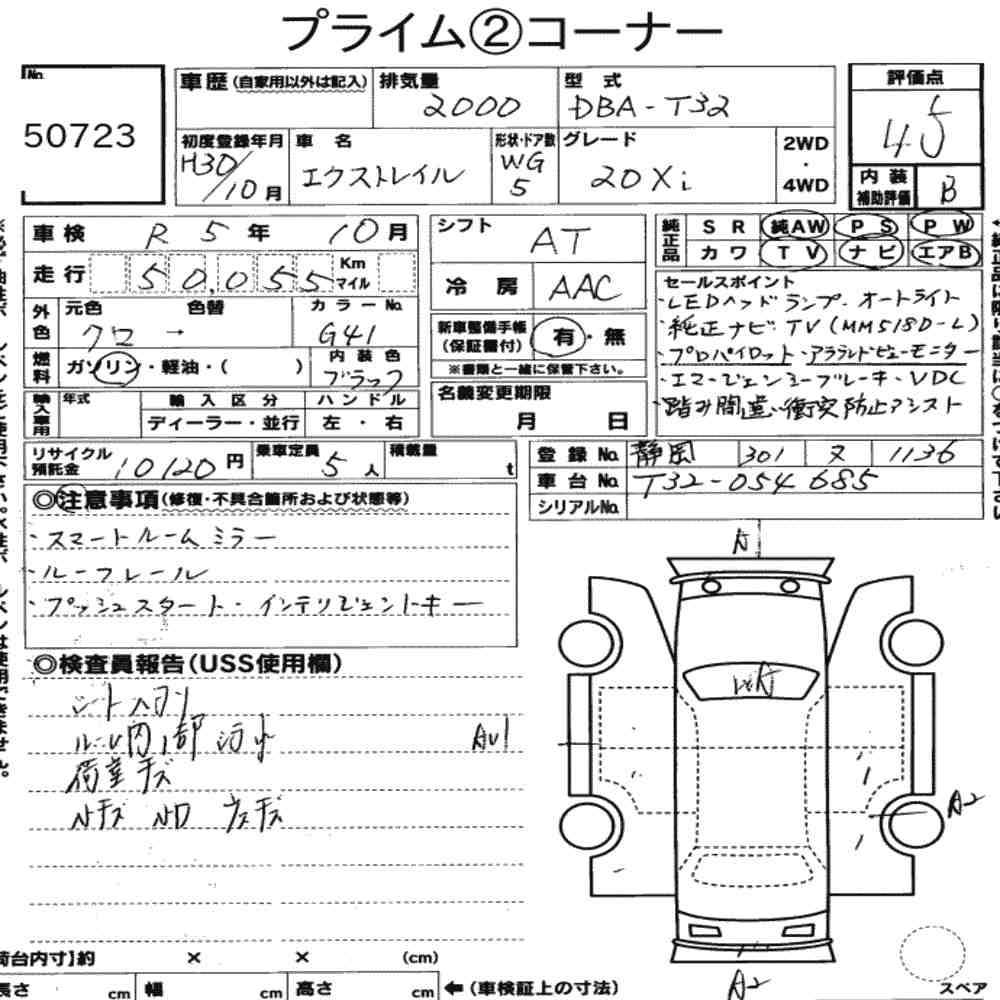 プライム②コーナー
No.
50723
車歴(自家用以外は記入)
排気量
2000
型式
DBA-T32
評価点
4.5
初度登録年月
H30/10月
車名
エクストレイル
形状・ドア数
WG
5
グレード
20Xi
2WD
・
4WD
内装
補助評価
B
車検 R5年 10月
シフト
AT
純正品
SR 純AW PS PW
カワ TV ナビ エアB
走行 50,055 Km マイル
冷房 AAC
セールスポイント
・LEDヘッドランプ・オートライト
・純正ナビTV(MM518D-L)
・プロパイロット・アラウンドビューモニター
・エマージェンシーブレーキ・VDC
・踏み間違い衝突防止アシスト
外色
元色 色替
クロ →
カラーNo.
G41
新車整備手帳
(保証書付)
有・無
※書類と一緒に保管下さい。
燃料
ガソリン・軽油・( )
内装色
ブラック
名義変更期限
月 日
輸入車用
年式
輸入区分
ディーラー・並行
ハンドル
左・右
リサイクル
預託金
10120円
乗車定員
5人
積載量
t
登録No. 静岡 301 ヌ 1136
車台No. T32-054685
シリアルNo.
◎注意事項(修復・不具合箇所および状態等)
・スマートルームミラー
・ルーフレール
・プッシュスタート・インテリジェントキー
◎検査員報告(USS使用欄)
荷室キズ
A
A2
A2
荷台内寸】約 × × (cm)
長さ cm 幅 cm 高さ cm ←(車検証上の寸法)
スペア